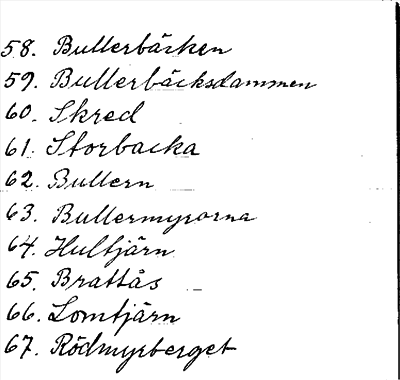 58. Bullerbäcken
59. Bullerbäcksdammen
60. Skred
61. Storbacka
62. Bullern
63. Bullermyrorna
64. Hultjärn
65. Brattås
66. Lomtjärn
67. Rödmyrberget